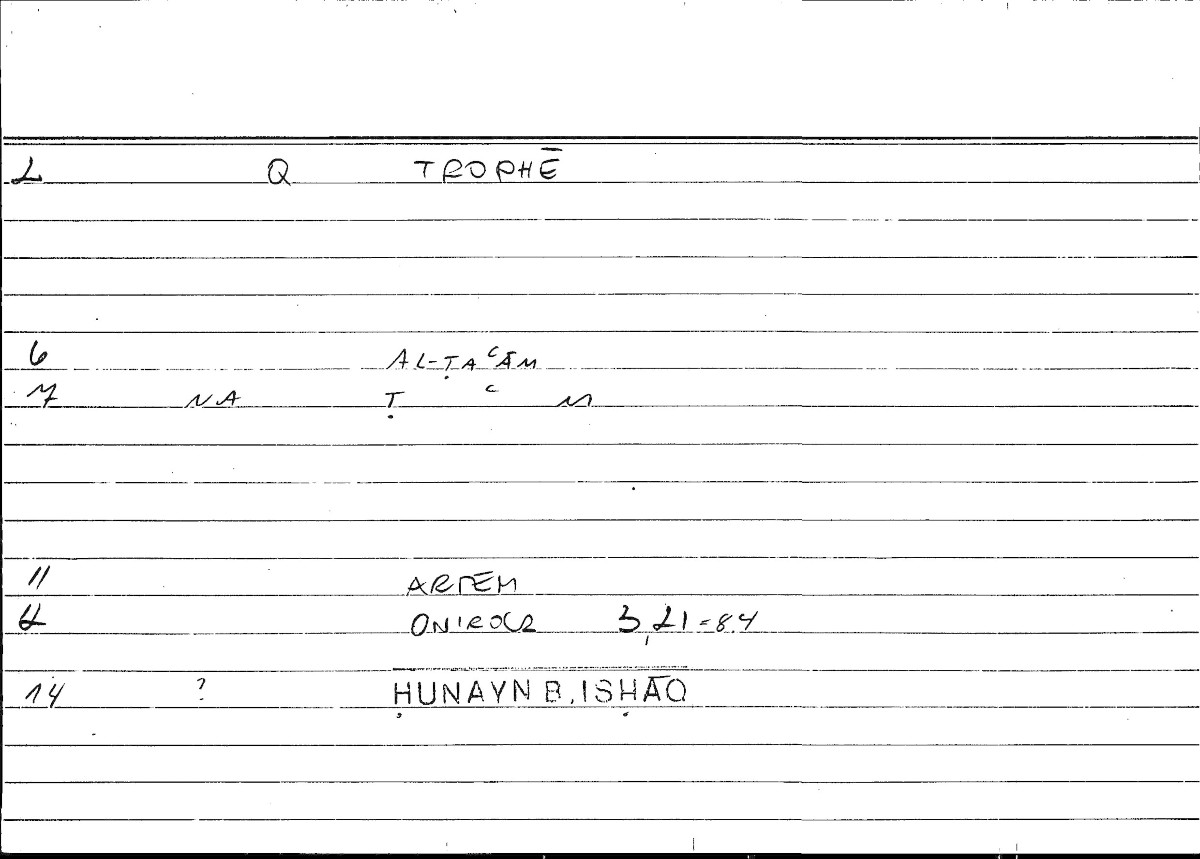 2 Q TROPHĒ
6 AL-ṬAʿĀM
7 NA Ṭ ʿ M
11 ARTEM
12 ONIROCR 3,21=84
14 ? ḤUNAYN B. ISḤĀQ